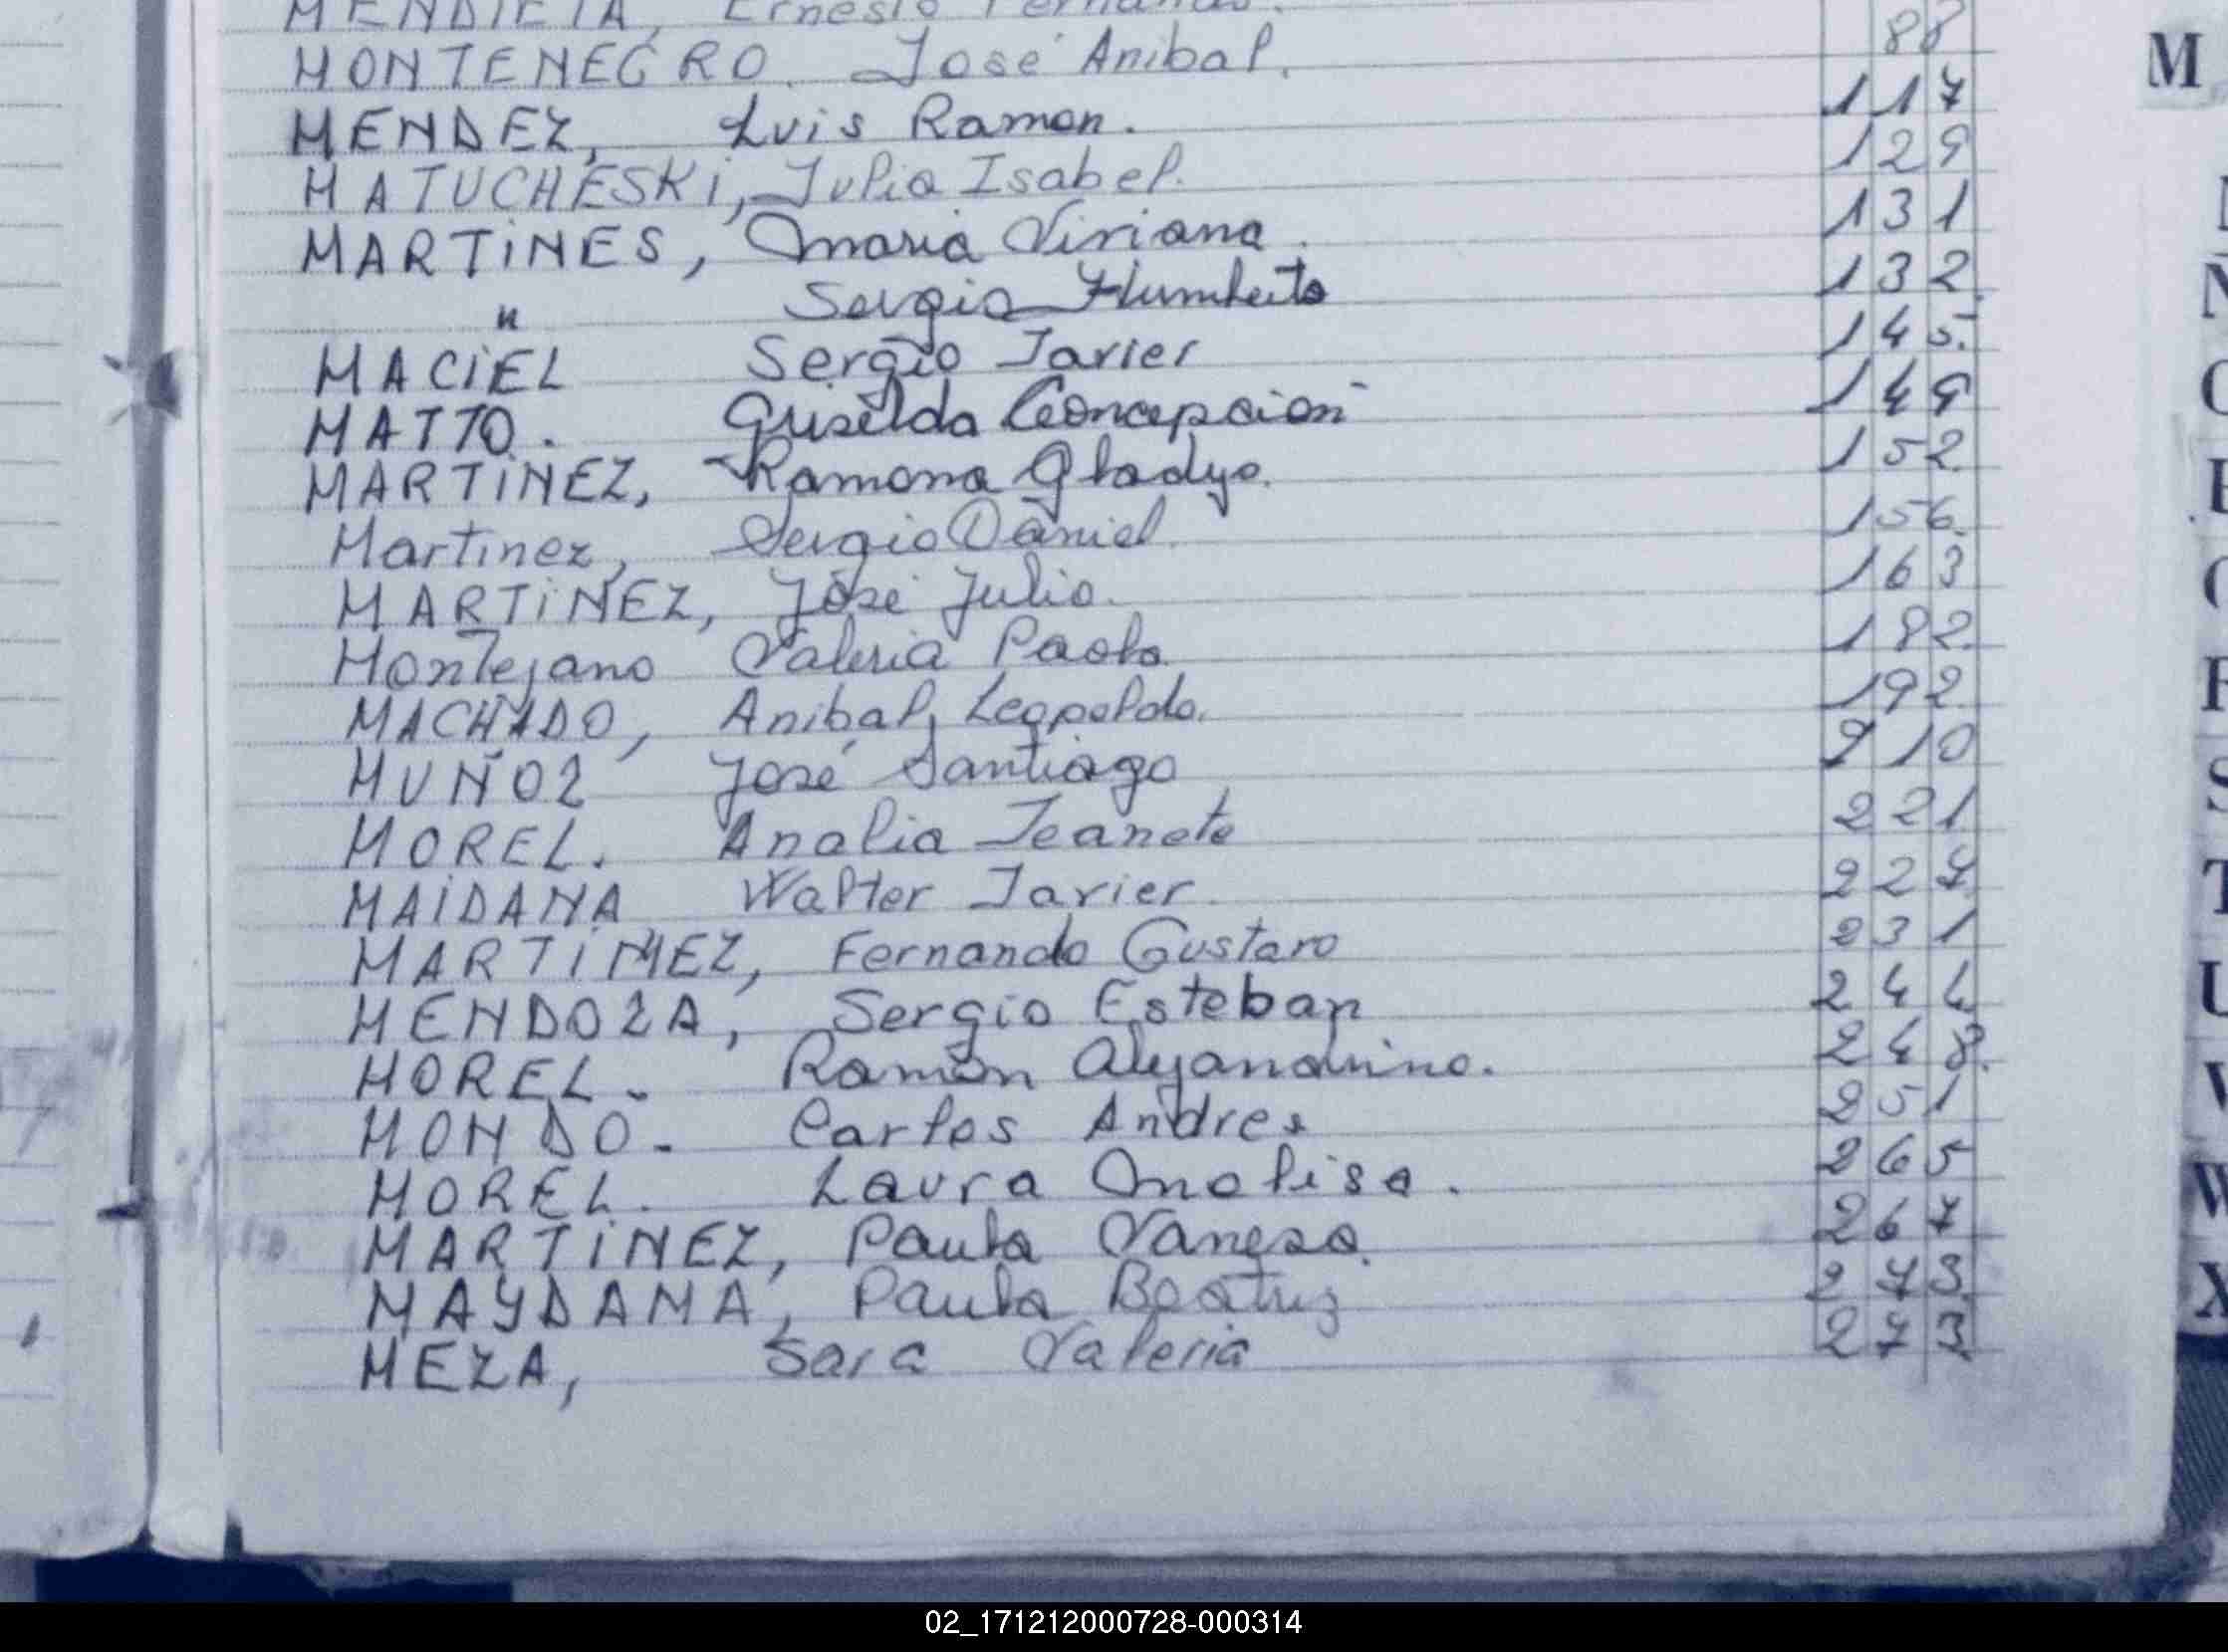 MENDIETA, Ernesto Fernando.
MONTENEGRO. José Anibal. 88
MENDEZ, Luis Ramon. 117
MATUCHESKi, Julia Isabel. 129
MARTiNES, Maria Viviana. 131
" Sergio Humberto 132
MACiEL Sergio Javier 145.
MATTO. Griselda Concepcion 149
MARTiNEZ, Ramona Gladys. 152
Martinez, Sergio Daniel. 156.
MARTiNEZ, José Julio. 163
Montejano Valeria Paola. 182.
MACHADO, Anibal Leopoldo. 192
MUÑOZ José Santiago 210
MOREL. Analia Jeanete 221
MAiDANA Walter Javier. 227
MARTiNEZ, Fernando Gustavo 231
MENDOZA, Sergio Esteban 244
MOREL. Ramón Alejandrino. 248.
MONDO. Carlos Andres 251
MOREL. Laura Analisa. 265
MARTiNEZ, Paula Vanesa. 267
MAYDANA, Paula Beatriz 273
MEZA, Sara Valeria 273
M
S
T
U
V
W
X
02_171212000728-000314